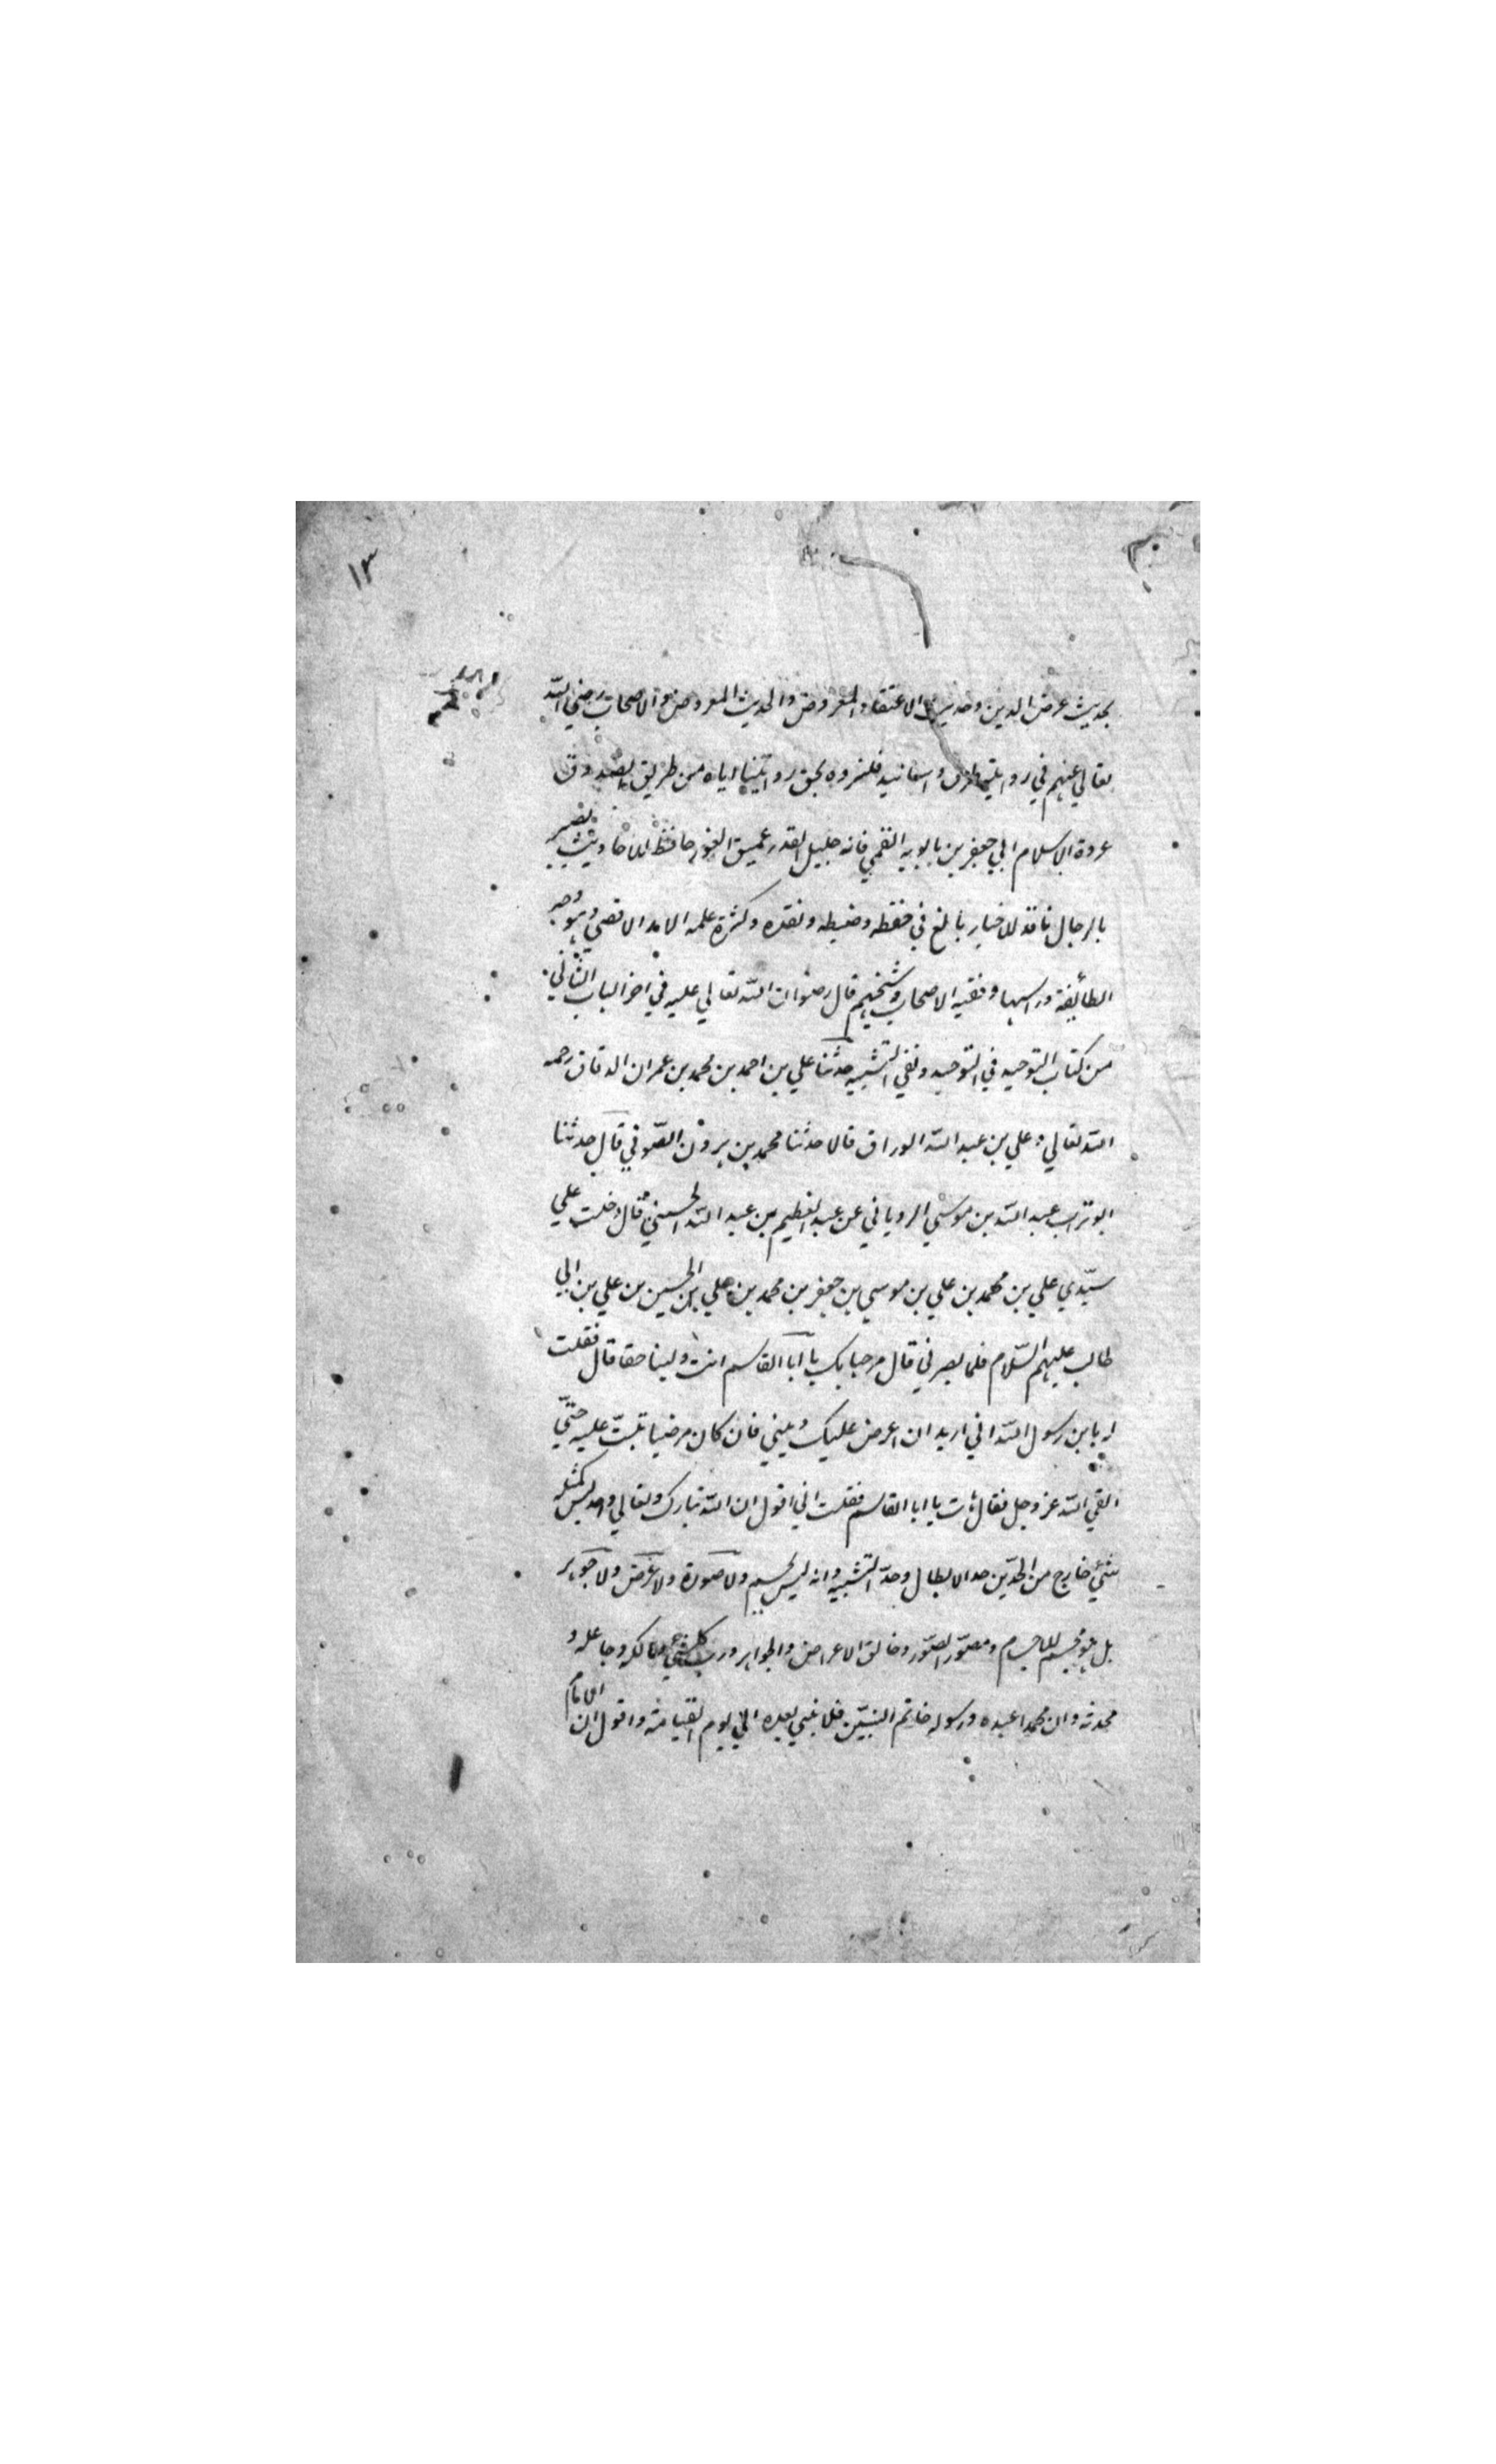 ١٣
بحديث عرض الدين وحديث الاعتقاد المعروض والحديث المعروض والاصحاب رضي الله
تعالي عنهم في روايته طرق واسانيد فلنروه بحق روايتنا اياه من طريق الصدوق
عروة الاسلام ابي جعفر بن بابويه القمي فانه جليل القدر عميق الغور حافظ للاحاديث بصير
بالرجال ناقد للاخبار بالغ في حفظه وضبطه ونقده وكثرة علمه الامد الاقصي وهو وجه
الطائفة وراسها وفقيه الاصحاب وشيخهم قال رضوان الله تعالي عليه في اخر الباب الثاني
من كتاب التوحيد في التوحيد ونفي التشبيه حدثنا علي بن احمد بن محمد بن عمران الدقاق رحمه
الله تعالي وعلي بن عبد الله الوراق قالا حدثنا محمد بن هرون الصوفي قال حدثنا
ابو تراب عبد الله بن موسي الروياني عن عبد العظيم بن عبد الله الحسني قال دخلت علي
سيّدي علي بن محمد بن علي بن موسي بن جعفر بن محمد بن علي بن الحسين بن علي بن ابي
طالب عليهم السّلام فلما بصر ني قال مرحبا بك يا ابا القاسم انت ولينا حقا قال فقلت
له يا بن رسول الله اني اريد ان اعرض عليك ديني فان كان مرضيا ثبتّ عليه حتّي
القي الله عز وجل فقال هات يا ابا القاسم فقلت اني اقول ان الله تبارك وتعالي واحد ليس كمثله
شئ خارج من الحدّين حد الابطال وحدّ التشبيه وانه ليس بجسم ولا صورة ولا عرض ولا جوهر
بل هو مجسم الاجسام ومصوّر الصّور وخالق الاعراض والجواهر ورب كل شئ ومالكه وجاعله و
محدثه وان محمدا عبده ورسوله خاتم النبيّين فلا نبي بعده الي يوم القيامة واقول ان الامام